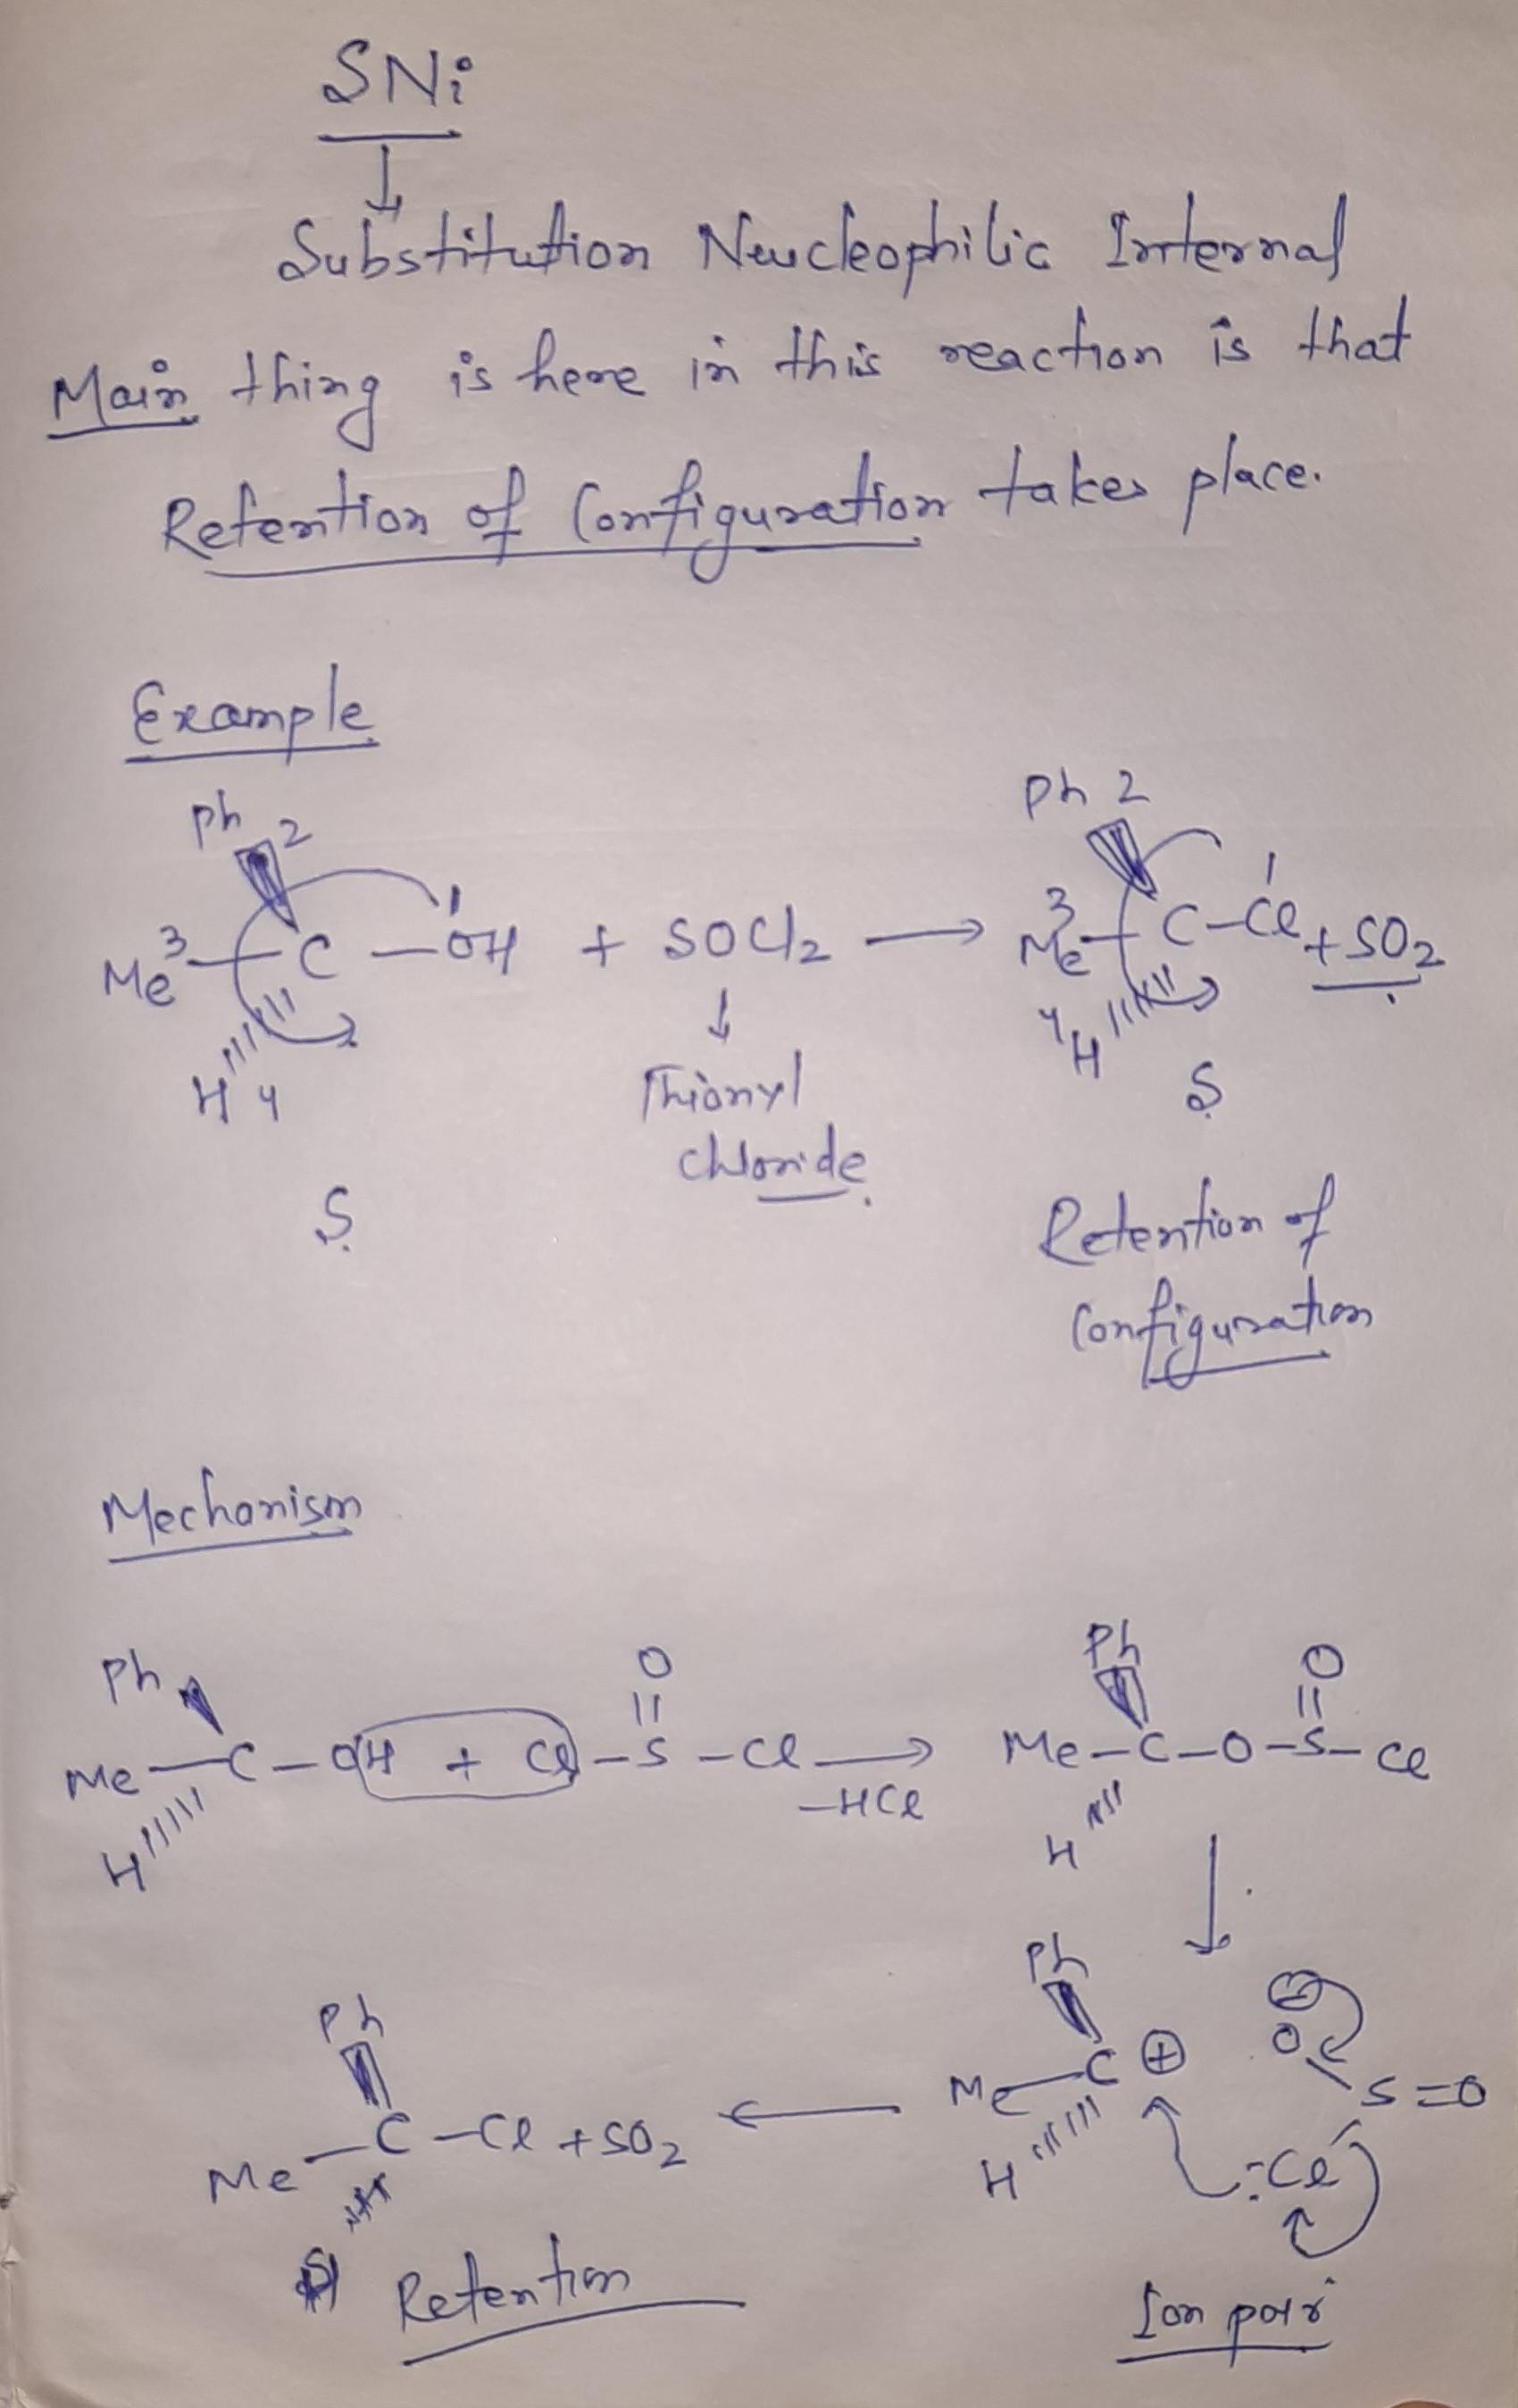 SNi
Substitution Neucleophilic Internal
Main thing is here in this reaction is that
Retention of Configuration takes place.
Example
Ph 2
Me 3 C - OH 1 + SOCl2 → Me 3 C - Cl 1 + SO2
H 4
Ph 2
4 H
Thionyl
chloride
S
S
Retention of
Configuration
Mechanism
Ph
Me - C - OH + Cl - S - Cl → Me - C - O - S - Cl
O
-HCl
H
Ph
O
H
Ph
Me - C ⊕
H
⊖
O
S=O
:Cl
Ion pair
Ph
Me - C - Cl + SO2 ←
Retention